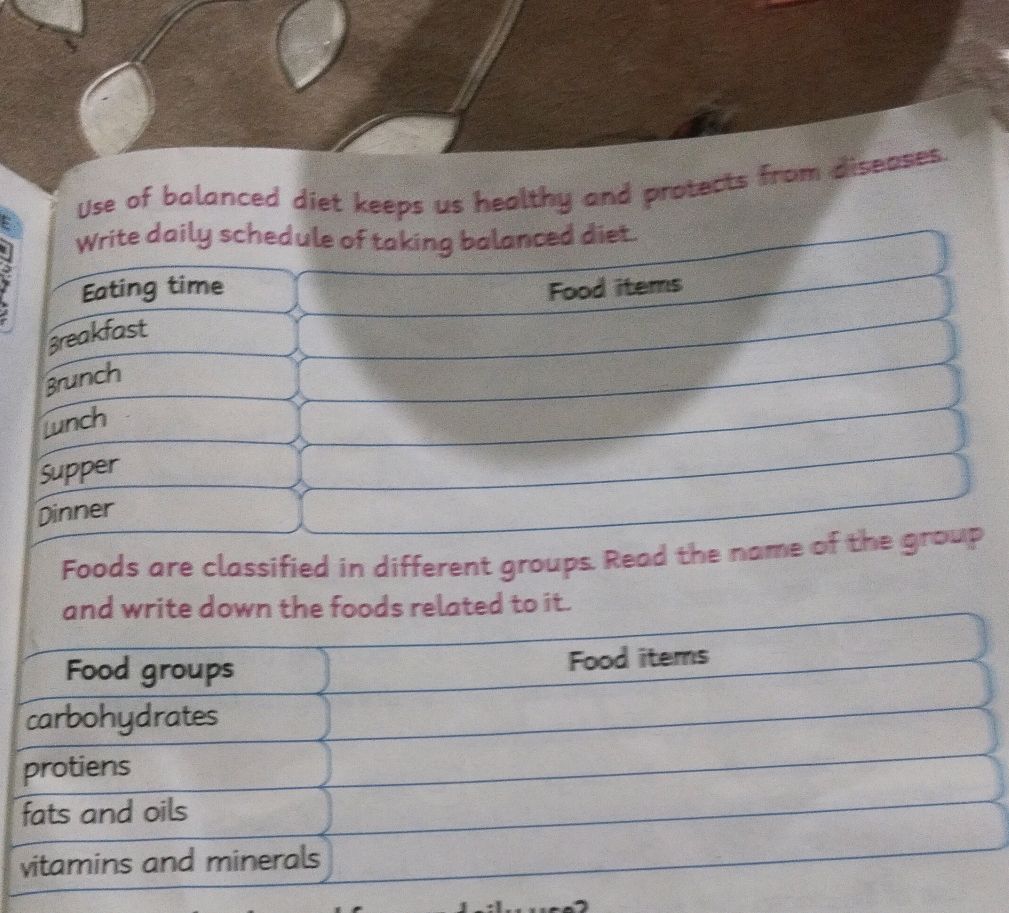 Use of balanced diet keeps us healthy and protects from diseases.
Write daily schedule of taking balanced diet.
Eating time Food items
Breakfast
Brunch
Lunch
Supper
Dinner
Foods are classified in different groups. Read the name of the group
and write down the foods related to it.
Food groups Food items
carbohydrates
protiens
fats and oils
vitamins and minerals